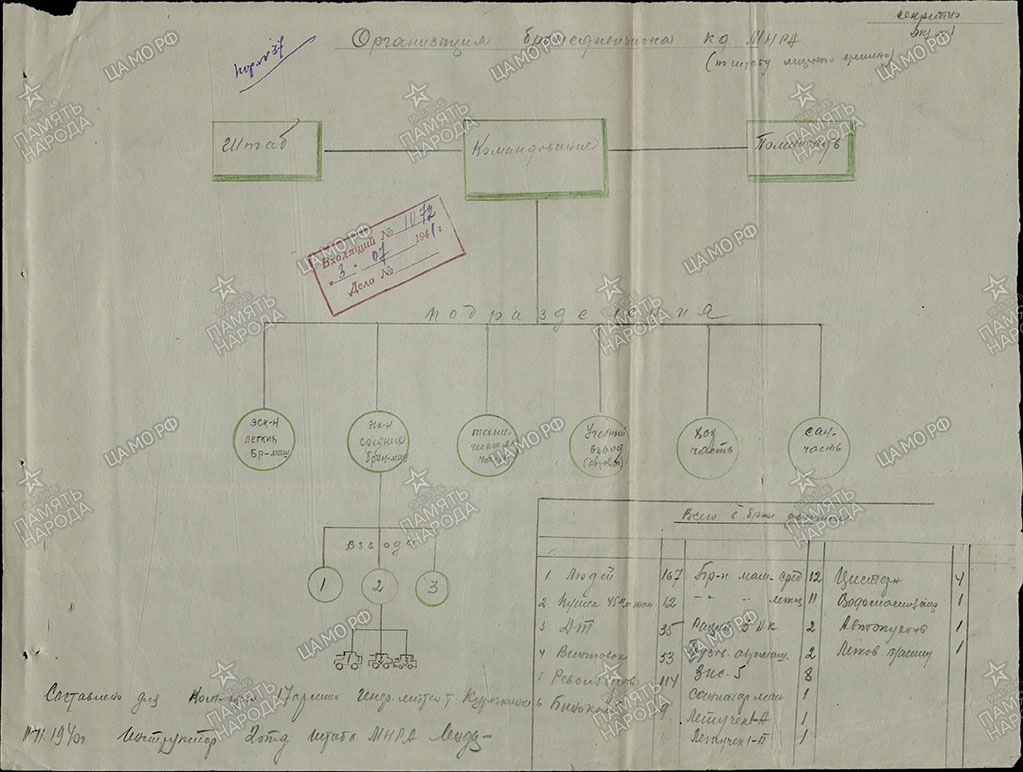 секретно
экз. № 1
Организация бронедивизиона КД МНРА
(по штату мирного времени)
Штаб
Командование
Политчасть
Входящий № 1072
"3" 07 1941 г.
Дело №
Подразделения
эск-н легких бр-маш
эск-н средних брон-маш
техническая часть
Учебный взвод
Хоз часть
сан-часть
Взводы
1 2 3
Всего в броне дивизионе
1 Людей 167
2. Пушек 45 м/м 12
3 ДТ 35
4 Винтовок 53
5 Револьверов 114
6 9
Бр-н маш. сред 12
-"- -"- легких 11
Радио 5 АК 2
2
Зис-5 8
Санитар маш 1
Летучек-А 1
Летучек-Б 1
Цистерн 4
Водомаслогреек 1
Автокухонь 1
Легков машин 1
Составлено для 17 армии Генерал-лейт. т. Курочкина
1940г Инструктор 2 отд штаба МНРА
ЦАМО РФ
ПАМЯТЬ НАРОДА